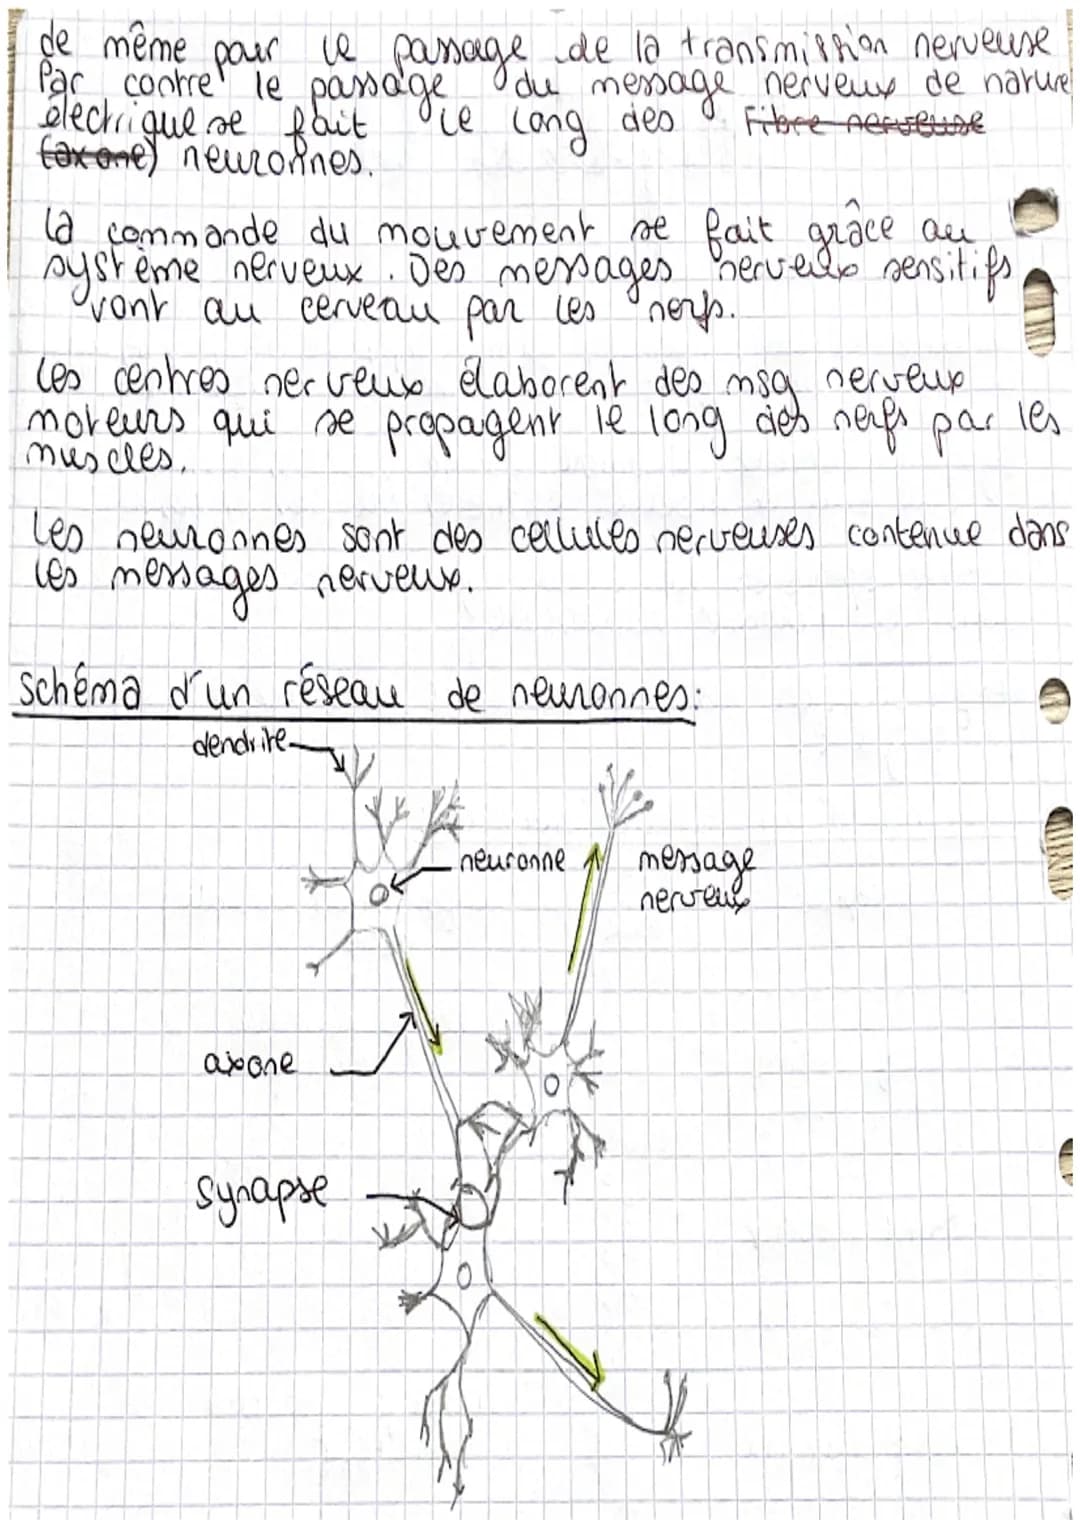 de même pour le passage de la transmission nerveuse
Par contre le passage du message nerveux de nature
électrique se fait le long des Fibre nerveuse
(axone) neuronnes.
la commande du mouvement se fait grâce au
système nerveux. Des messages nerveux sensitifs
vont au cerveau par les nerfs.
les centres nerveux élaborent des msg nerveux
moteurs qui se propagent le long des nerfs par les
muscles.
Les neuronnes sont des cellules nerveuses contenue dans
les messages nerveux.
schéma d'un réseau de neuronnes:
dendrite
neuronne
message
nerveux
axone
synapse